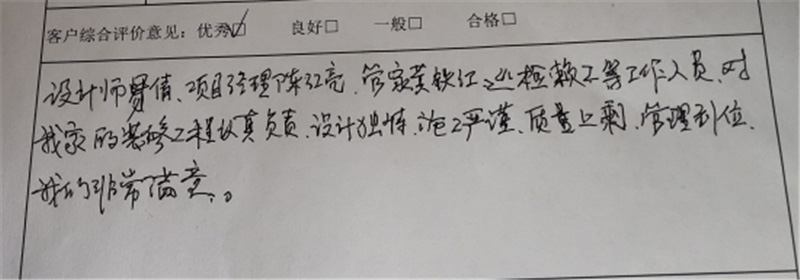 客户综合评价意见：优秀☑ 良好□ 一般□ 合格□
设计师 倩、项目经理陈红亮、管家黄铁江、巡检赖工等工作人员，对
我家的装修工程认真负责、设计独特、施工严谨、质量上剩、管理到位、
我们非常满意。